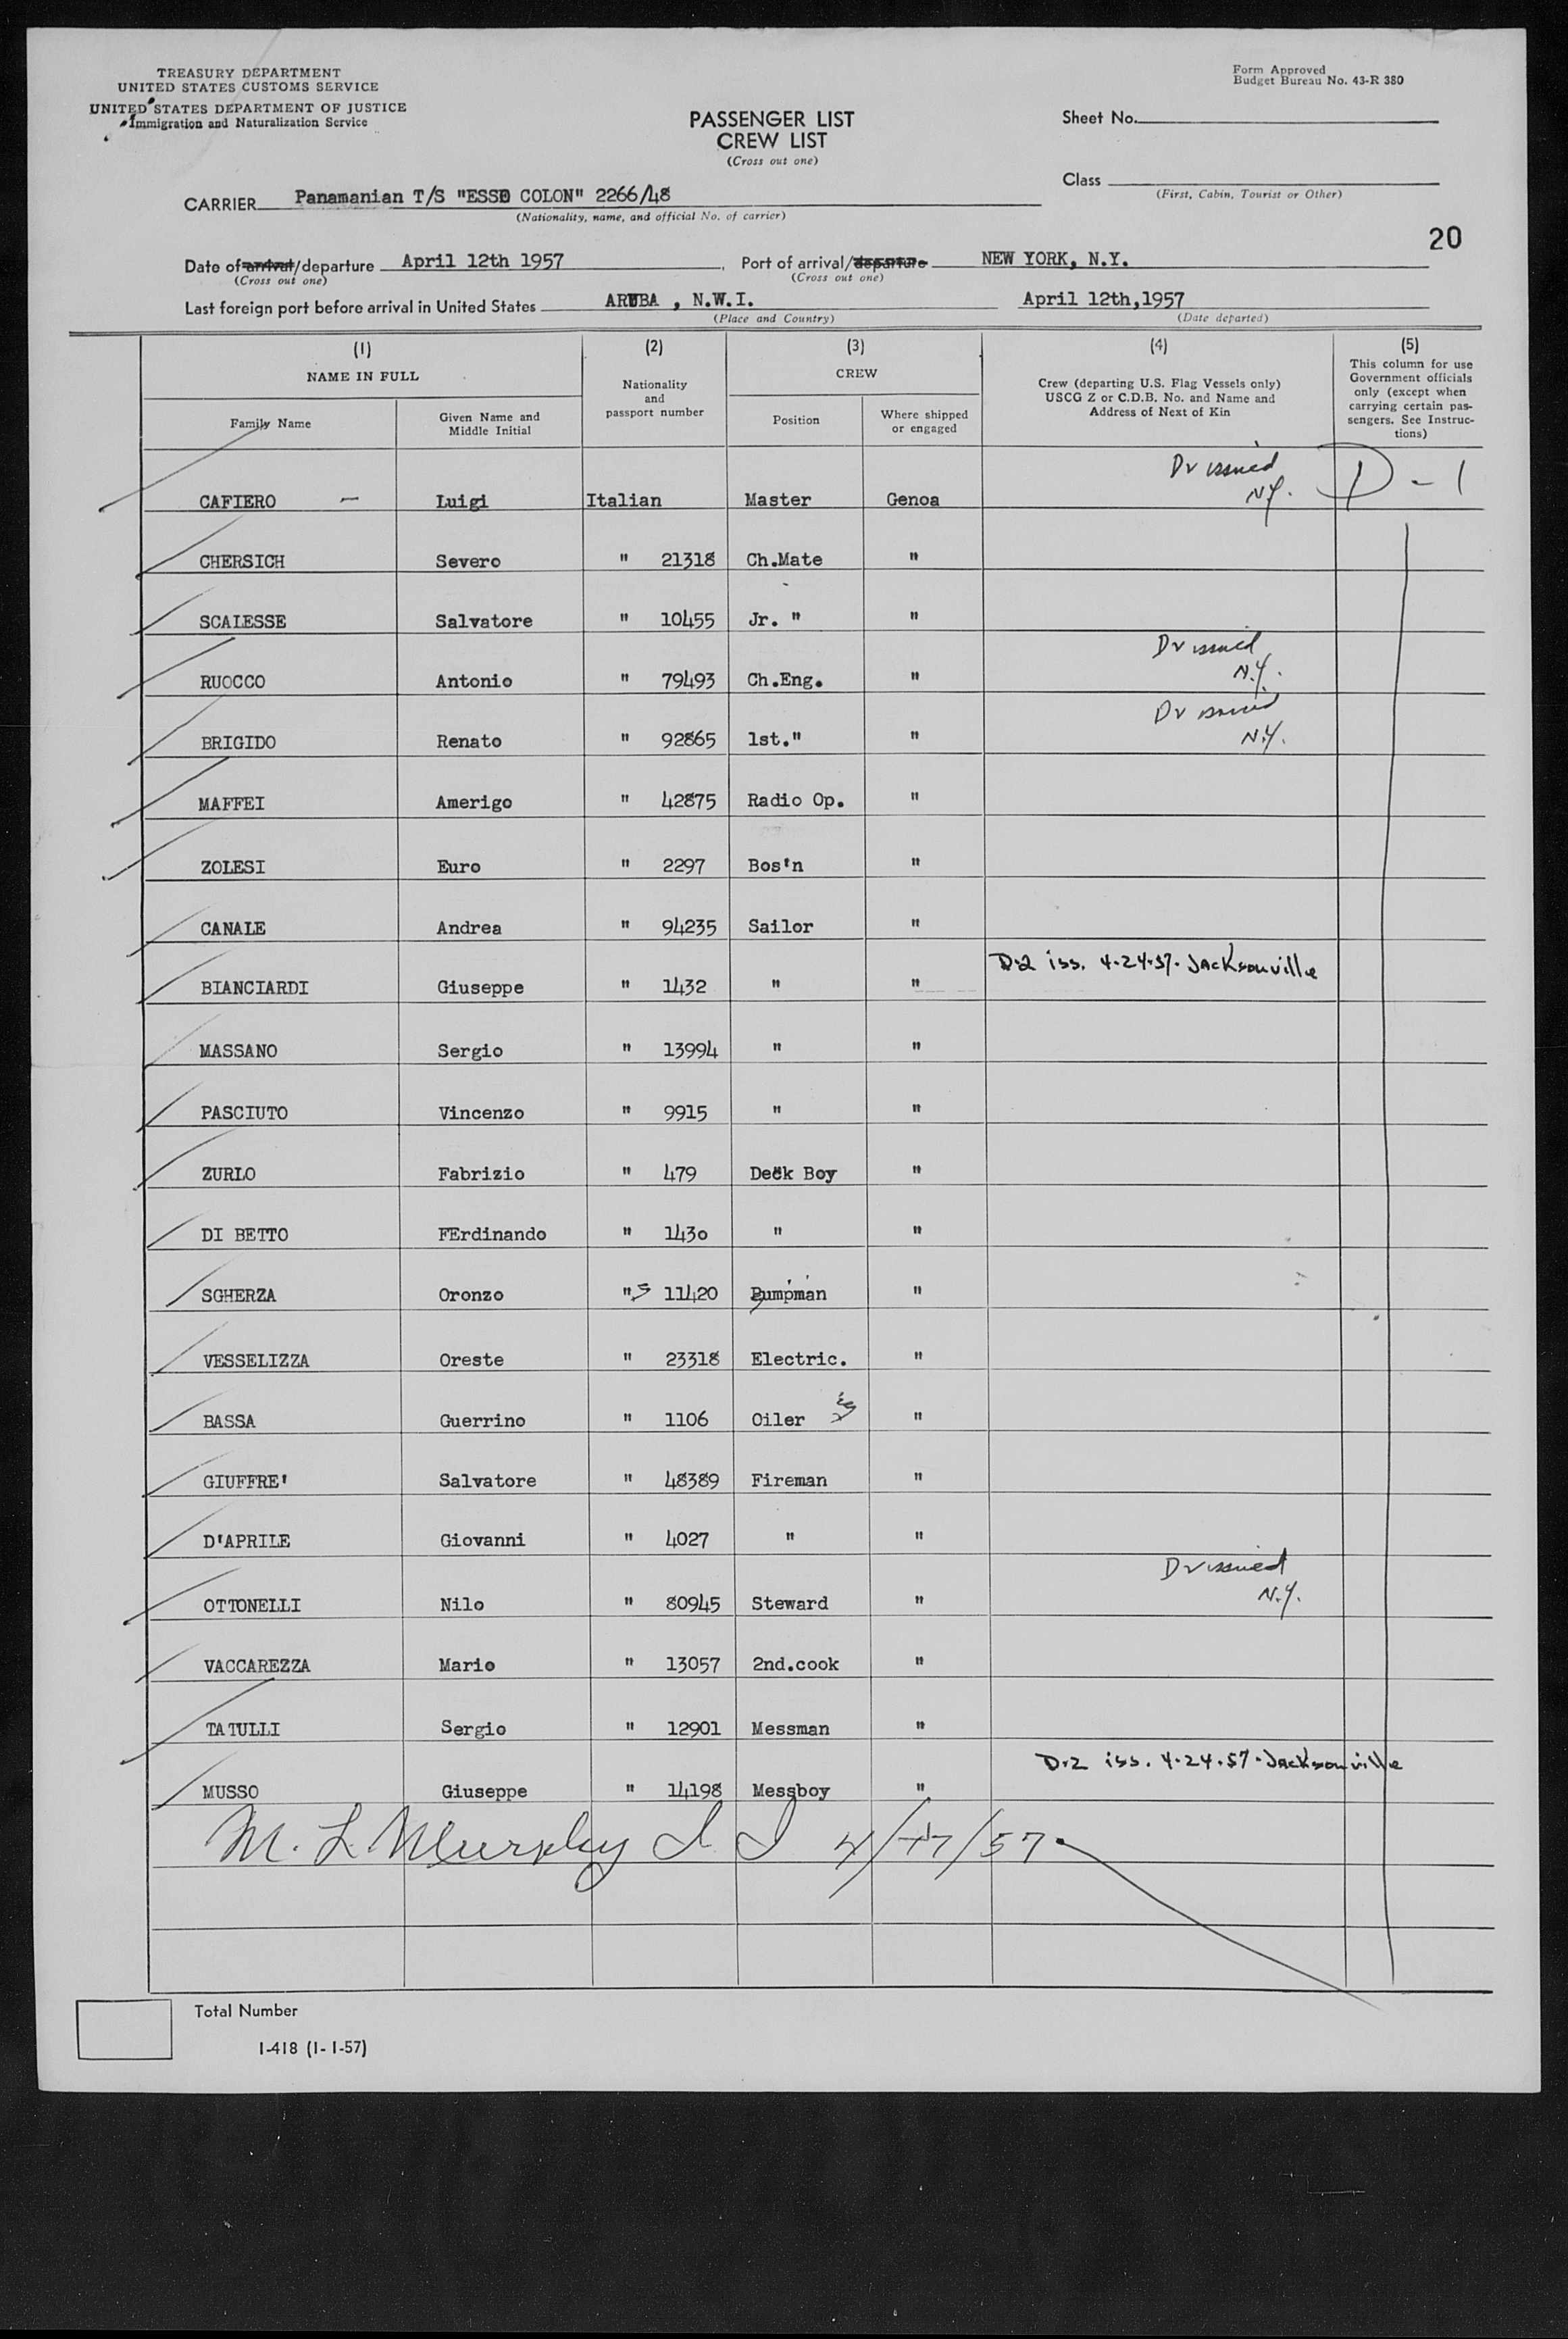 TREASURY DEPARTMENT
UNITED STATES CUSTOMS SERVICE
UNITED STATES DEPARTMENT OF JUSTICE
Immigration and Naturalization Service
Form Approved
Budget Bureau No. 43-R 380
PASSENGER LIST
CREW LIST
(Cross out one)
Sheet No.
Class
(First, Cabin, Tourist or Other)
CARRIER Panamanian T/S "ESSO COLON" 2266/48
(Nationality, name, and official No. of carrier)
20
Date of arrival/departure April 12th 1957, Port of arrival/departure NEW YORK, N.Y.
(Cross out one) (Cross out one)
Last foreign port before arrival in United States ARUBA , N.W.I. April 12th,1957
(Place and Country) (Date departed)
(1) (2) (3) (4) (5)
NAME IN FULL
Family Name
Given Name and Middle Initial
Nationality and passport number
CREW
Position
Where shipped or engaged
Crew (departing U.S. Flag Vessels only) USCG Z or C.D.B. No. and Name and Address of Next of Kin
This column for use Government officials only (except when carrying certain passengers. See Instructions)
CAFIERO — Luigi Italian Master Genoa Dr issued N.Y. D-1
CHERSICH Severo " 21318 Ch.Mate "
SCALESSE Salvatore " 10455 Jr. " "
RUOCCO Antonio " 79493 Ch.Eng. " Dr issued N.Y.
BRIGIDO Renato " 92865 1st." " Dr issued N.Y.
MAFFEI Amerigo " 42875 Radio Op. "
ZOLESI Euro " 2297 Bos'n "
CANALE Andrea " 94235 Sailor "
BIANCIARDI Giuseppe " 1432 " " D-2 iss. 4-24-57. Jacksonville
MASSANO Sergio " 13994 " "
PASCIUTO Vincenzo " 9915 " "
ZURLO Fabrizio " 479 Deck Boy "
DI BETTO FErdinando " 1430 " "
SGHERZA Oronzo " 11420 Pumpman "
VESSELIZZA Oreste " 23318 Electric. "
BASSA Guerrino " 1106 Oiler "
GIUFFRE' Salvatore " 48389 Fireman "
D'APRILE Giovanni " 4027 " "
OTTONELLI Nilo " 80945 Steward " Dr issued N.Y.
VACCAREZZA Mario " 13057 2nd.cook "
TATULLI Sergio " 12901 Messman "
MUSSO Giuseppe " 14198 Messboy " D-2 iss. 4-24-57-Jacksonville
M. L. Murphy I I 4/17/57
Total Number
I-418 (1-1-57)